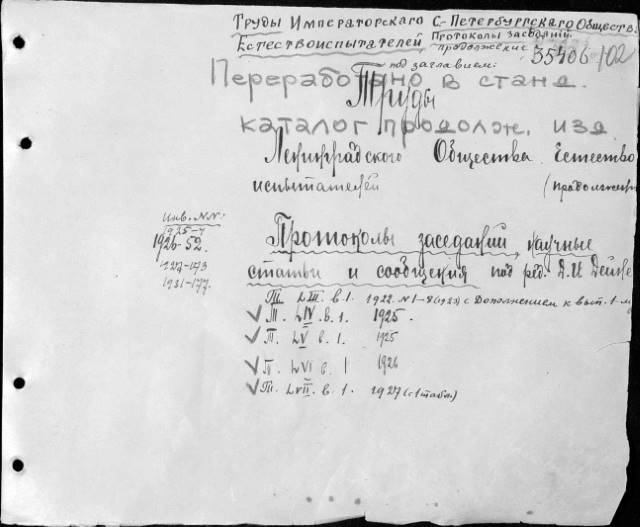 Труды Императорского С.-Петербургскаго Обществ.
Естествоиспытателей Протоколы засѣданій.
продолжение 35406 102
под заглавием:
Переработано в станд.
Труды
каталог продолж. изд.
Ленинградского Общества Естество
испытателей (продолжен
Инв. NN:
1925-4
1926-52.
1927-173
1931-177.
Протоколы заседаний, научные
статьи и сообщения под ред. Д.И Дейне
Т. LIII. в. 1. 1922. N 1-8 (1923) с Дополнением к вып. 1-му
✓ Т. LIV. в. 1. 1925.
✓ Т. LV в. 1. 1925
✓ Т. LVI в. 1 1926
✓ Т. LVII. в. 1. 1927 (с 1 табл.)